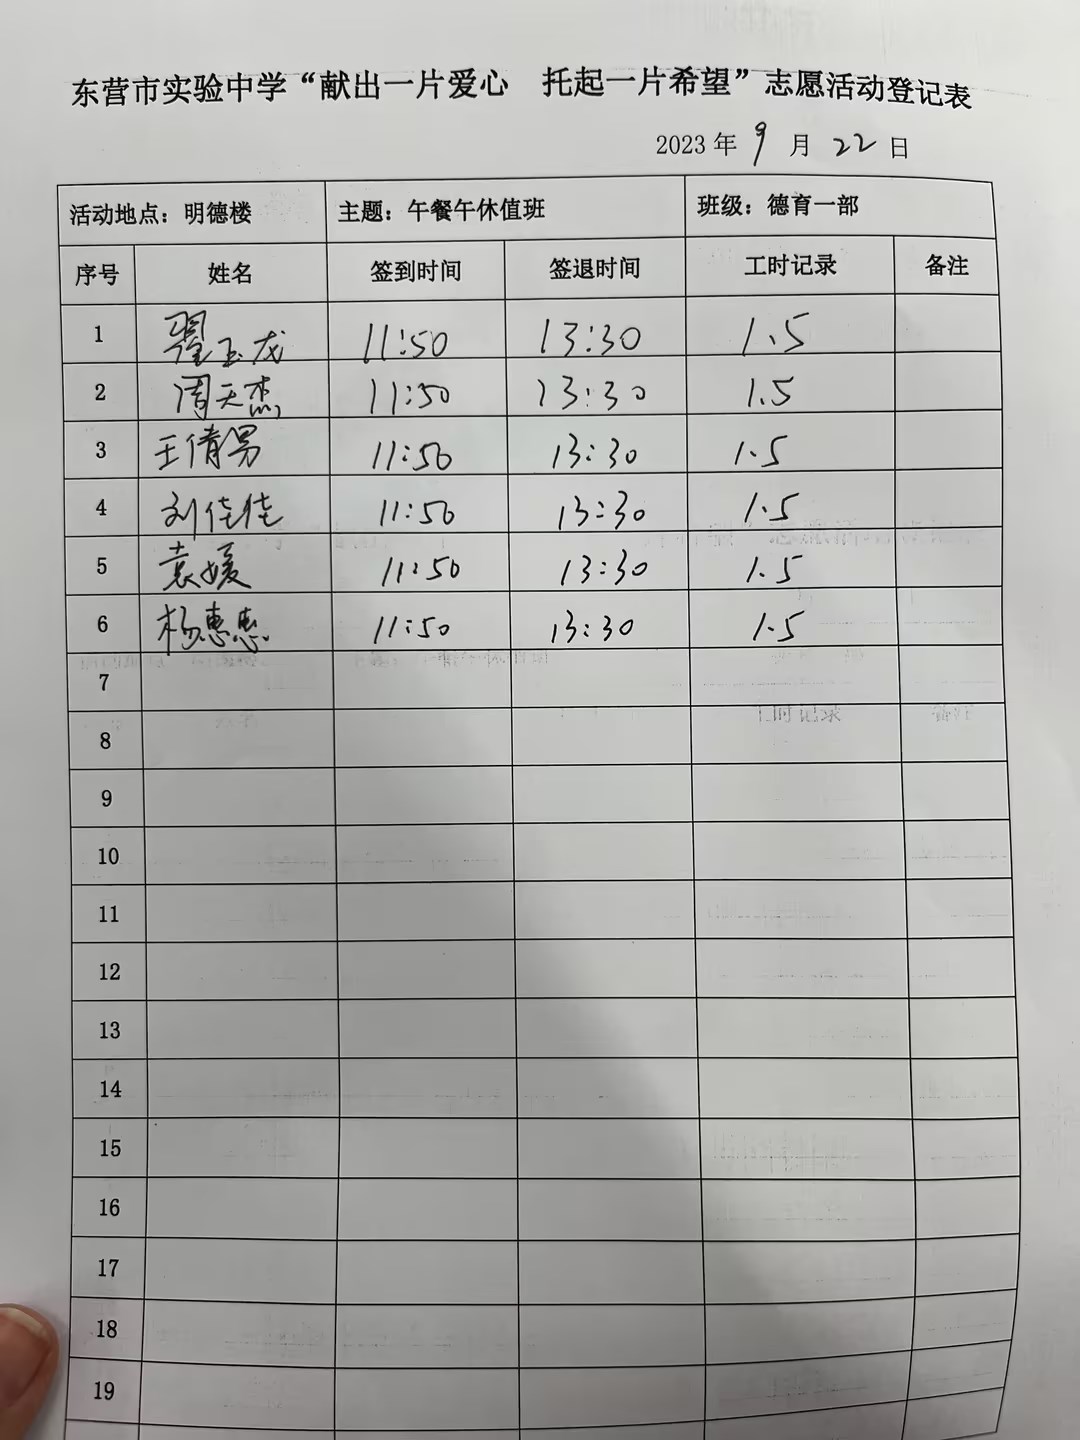 东营市实验中学“献出一片爱心 托起一片希望”志愿活动登记表
2023 年 9 月 22 日
活动地点：明德楼 主题：午餐午休值班 班级：德育一部
序号 姓名 签到时间 签退时间 工时记录 备注
1 翟玉龙 11:50 13:30 1.5
2 周天杰 11:50 13:30 1.5
3 王倩男 11:50 13:30 1.5
4 刘佳佳 11:50 13:30 1.5
5 袁媛 11:50 13:30 1.5
6 杨惠惠 11:50 13:30 1.5
7
8
9
10
11
12
13
14
15
16
17
18
19